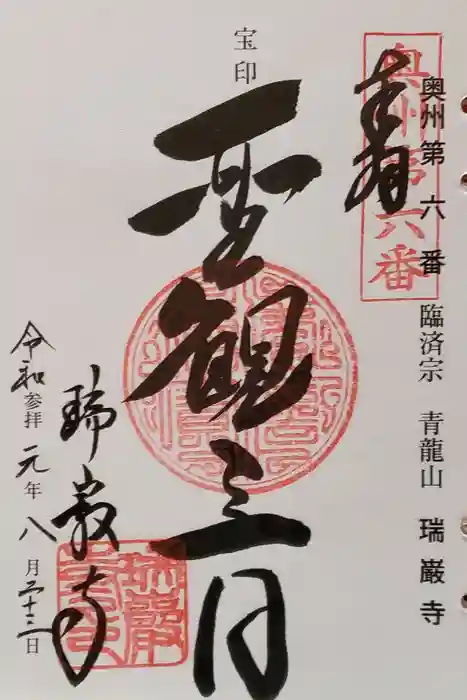 奥州第六番 臨済宗 青龍山 瑞巌寺
奥州第六番
奉拝
宝印
聖観音
瑞巌寺
令和元年八月二十三日
参拝